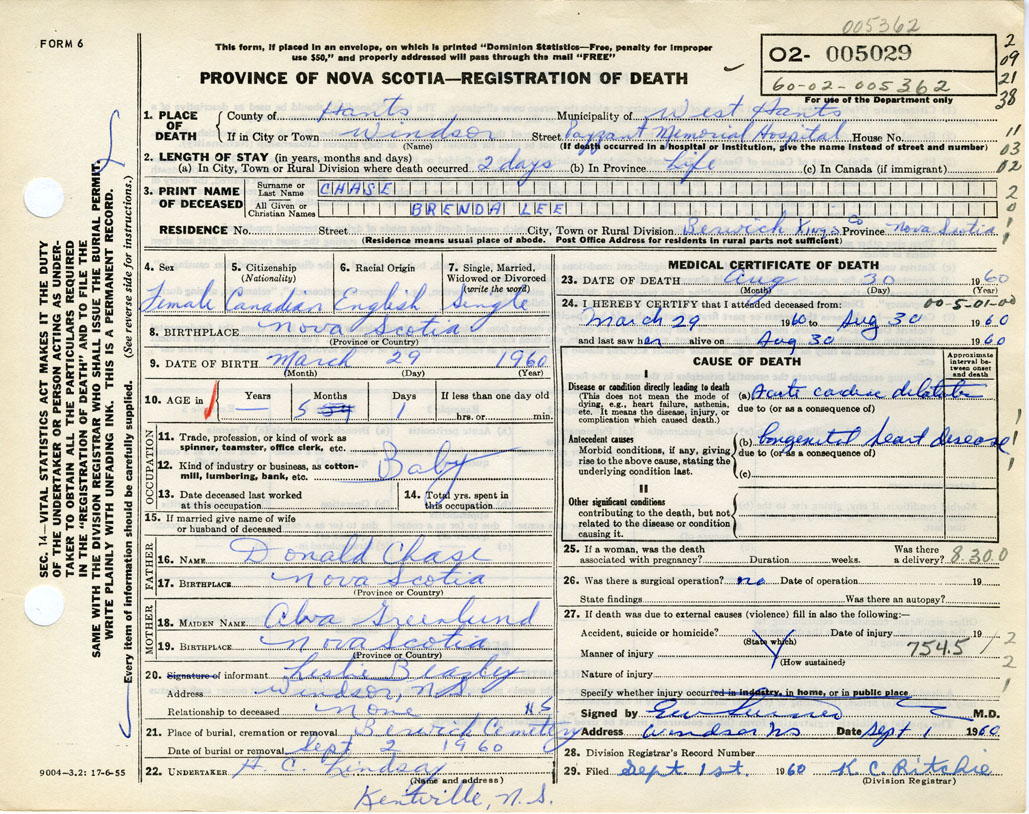 005362
FORM 6
This form, if placed in an envelope, on which is printed "Dominion Statistics—Free, penalty for improper
use $50," and properly addressed will pass through the mail "FREE"
PROVINCE OF NOVA SCOTIA—REGISTRATION OF DEATH
O2- 005029
60-02-005362
For use of the Department only
2
09
21
38
11
03
02
1. PLACE OF DEATH
County of Hants Municipality of West Hants
If in City or Town Windsor Street Payzant Memorial Hospital House No.
(Name) (If death occurred in a hospital or institution, give the name instead of street and number)
2. LENGTH OF STAY (in years, months and days)
(a) In City, Town or Rural Division where death occurred 2 days (b) In Province Life (c) In Canada (if immigrant)
3. PRINT NAME OF DECEASED
Surname or Last Name CHASE
All Given or Christian Names BRENDA LEE
RESIDENCE No. Street City, Town or Rural Division Berwick Kings Co Province Nova Scotia
(Residence means usual place of abode. Post Office Address for residents in rural parts not sufficient)
SEC. 14—VITAL STATISTICS ACT MAKES IT THE DUTY
OF THE UNDERTAKER OR PERSON ACTING AS UNDER-
TAKER TO OBTAIN ALL THE PARTICULARS REQUIRED
IN THE "REGISTRATION OF DEATH" AND TO FILE THE
SAME WITH THE DIVISION REGISTRAR WHO SHALL ISSUE THE BURIAL PERMIT.
WRITE PLAINLY WITH UNFADING INK. THIS IS A PERMANENT RECORD.
Every item of information should be carefully supplied. (See reverse side for instructions.)
4. Sex 5. Citizenship (Nationality) 6. Racial Origin 7. Single, Married, Widowed or Divorced (write the word)
Female Canadian English Single
8. BIRTHPLACE Nova Scotia
(Province or Country)
9. DATE OF BIRTH March 29 1960
(Month) (Day) (Year)
10. AGE in Years — Months 5 Days 1 If less than one day old hrs. or min.
OCCUPATION
11. Trade, profession, or kind of work as
spinner, teamster, office clerk, etc.
12. Kind of industry or business, as cotton-
mill, lumbering, bank, etc. Baby
13. Date deceased last worked
at this occupation
14. Total yrs. spent in
this occupation
15. If married give name of wife
or husband of deceased
FATHER
16. NAME Donald Chase
17. BIRTHPLACE Nova Scotia
(Province or Country)
MOTHER
18. MAIDEN NAME Alva Greenlund
19. BIRTHPLACE Nova Scotia
(Province or Country)
20. Signature of informant Leslie Beazley
Address Windsor, N.S.
Relationship to deceased None N S
21. Place of burial, cremation or removal Berwick Cemetery
Date of burial or removal Sept 2 1960
22. UNDERTAKER H. C. Lindsay
(Name and address)
Kentville, N. S.
9004—3.2: 17-6-55
MEDICAL CERTIFICATE OF DEATH
23. DATE OF DEATH Aug 30 1960
(Month) (Day) (Year)
24. I HEREBY CERTIFY that I attended deceased from: 00-5-01-00
March 29 1960 to Aug 30 1960
and last saw her alive on Aug 30 1960
CAUSE OF DEATH
Approximate interval between onset and death
I
Disease or condition directly leading to death
(This does not mean the mode of
dying, e.g., heart failure, asthenia,
etc. It means the disease, injury, or
complication which caused death.)
(a) Acute cardiac dilatation
due to (or as a consequence of)
Antecedent causes
Morbid conditions, if any, giving
rise to the above cause, stating the
underlying condition last.
(b) Congenital heart disease
due to (or as a consequence of)
(c)
II
Other significant conditions
contributing to the death, but not
related to the disease or condition
causing it.
25. If a woman, was the death
associated with pregnancy? Duration weeks. Was there a delivery? 8300
26. Was there a surgical operation? no Date of operation 19
State findings Was there an autopsy?
27. If death was due to external causes (violence) fill in also the following:—
Accident, suicide or homicide? (State which) Date of injury 19
Manner of injury (How sustained) 754.5
Nature of injury
Specify whether injury occurred in industry, in home, or in public place
Signed by M.D.
Address Windsor NS Date Sept 1 1960
28. Division Registrar's Record Number
29. Filed Sept. 1st. 1960 K. C. Ritchie
(Division Registrar)